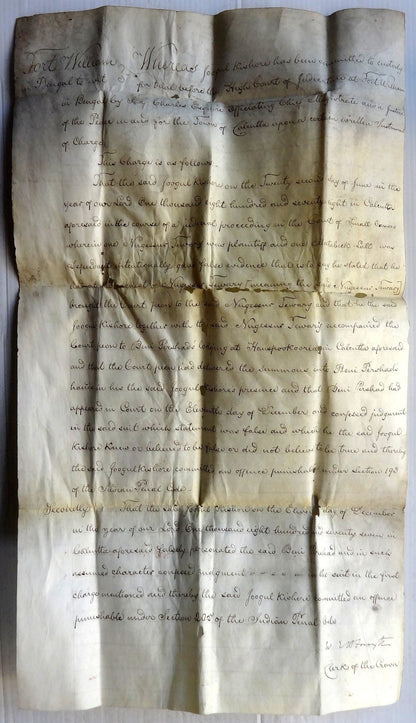 Fort William Whereas Joogul Kishore has been committed to custody
in Bengal to wit for trial before the High Court of Judicature at Fort William
in Bengal by of Charles Esquire officiating Chief Magistrate and a Justice
of the Peace in and for the Town of Calcutta upon a certain written Instrument
of Charge
This Charge is as follows
That the said Joogul Kishore on the Twenty second day of June in the
year of our Lord One thousand eight hundred and seventy eight in Calcutta
aforesaid in the course of a judicial proceeding in the Court of Small Causes
wherein one Nugessur Tewary was plaintiff and one Butt was
defendant intentionally gave false evidence that is to say he stated that he
Nugessur Tewary the said Nugessur Tewary
brought the Court peon to the said Nugessur Tewary and that he the said
Joogul Kishore together with the said Nugessur Tewary accompanied the
Court peon to Beni Pershads lodging at Hanspookooria in Calcutta aforesaid
and that the Court peon had delivered the Summons into Beni Pershads
hands in his the said Joogul Kishores presence and that Beni Pershad had
appeared in Court on the Eleventh day of December and confessed judgment
in the said suit which statement was false and which he the said Joogul
Kishore knew or believed to be false or did not believe to be true and thereby
the said Joogul Kishore committed an offence punishable under section 193
of the Indian Penal Code
Secondly That the said Joogul Kishore on the Eleventh day of December
in the year of our Lord One thousand eight hundred and seventy seven in
Calcutta aforesaid falsely personated the said Beni Pershad and in such
assumed character confessed judgment in the suit in the first
charge mentioned and thereby the said Joogul Kishore committed an offence
punishable under Section 205 of the Indian Penal Code
Clerk of the Crown